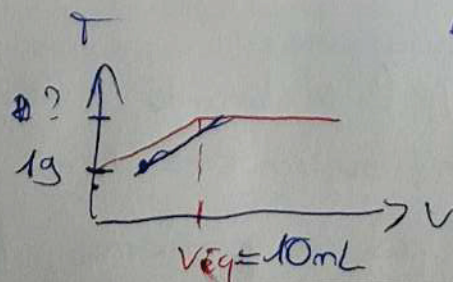 T
?
19
V
Veq=10mL